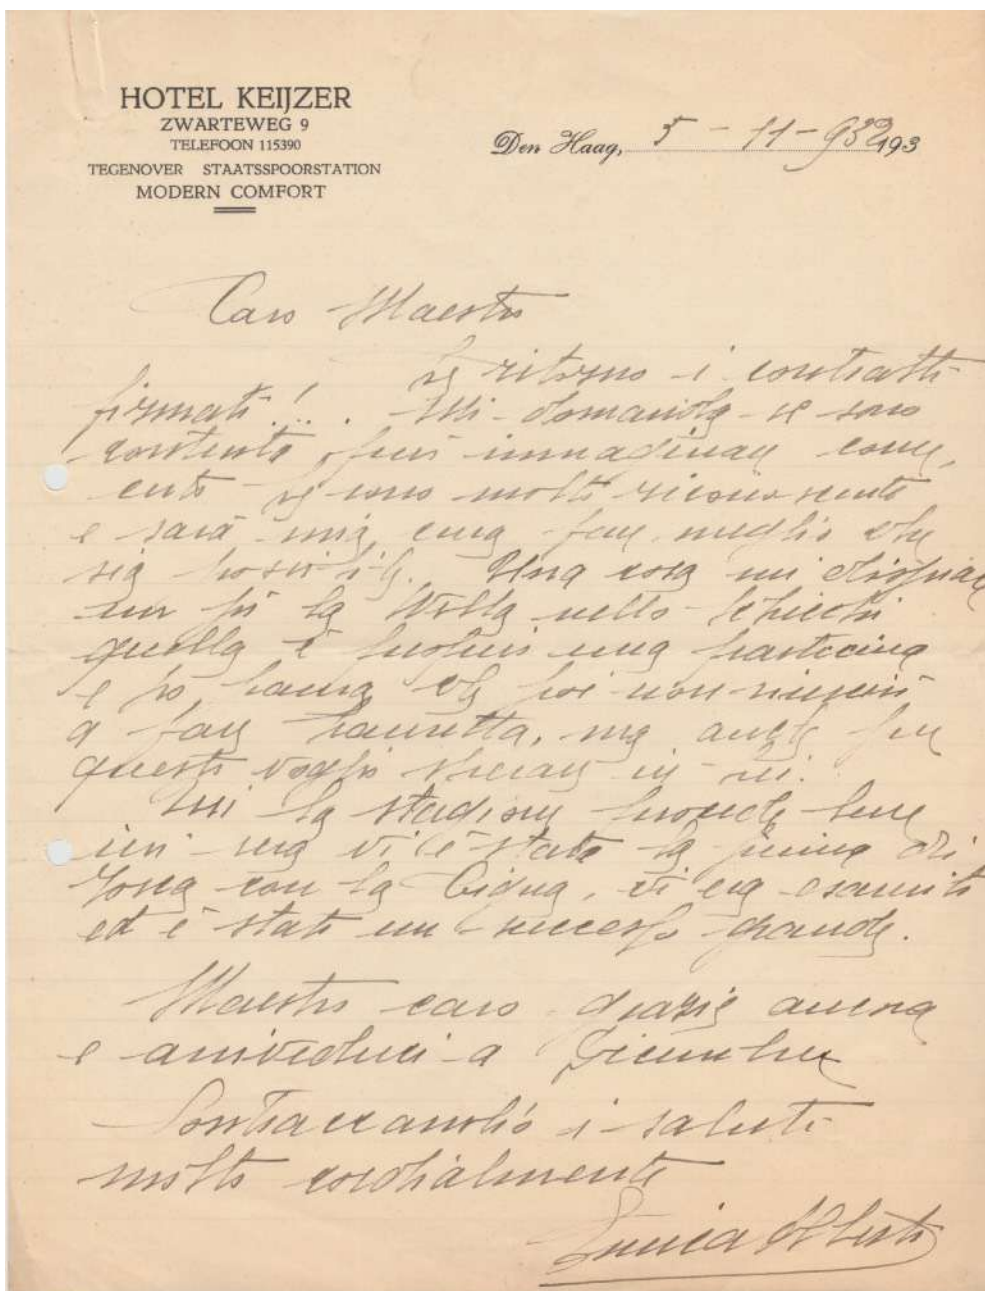 HOTEL KEIJZER
ZWARTEWEG 9
TELEFOON 115390
TEGENOVER STAATSSPOORSTATION
MODERN COMFORT
Den Haag, 5 - 11 - 932 193
Caro Maestro
Le ritorno i contratti
firmati!.. Mi domanda se sono
contento, può immaginare come,
certo le sono molto riconoscente
e sarà mia cura fare meglio che
sia possibile. Una cosa mi dispiace
un pò la Wally nello
quella è proprio una particina
e hò paura che poi non riuscirò
a fare, ma anche per
questo voglio sperare in
la stagione procede bene
ieri sera vi è stata la prima di
Tosca con la Cigna, vi era esaurito
ed è stato un successo grande.
Maestro caro grazie ancora
e arrivederci a Dicembre
Contraccambio i saluti
molto cordialmente